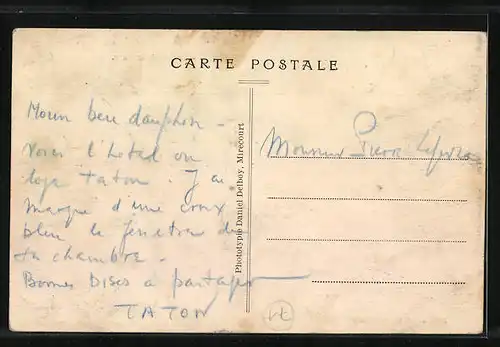 CARTE POSTALE
Moun beu dauphin -
Voici l'hotel ou
loge Taton. J'ai
marqué d'une croix
bleu la fenetre de
sa chambre.
Bonnes Bises a partager
TATON
Phototypie Daniel Delboy, Mirecourt
Monsieur Pierre